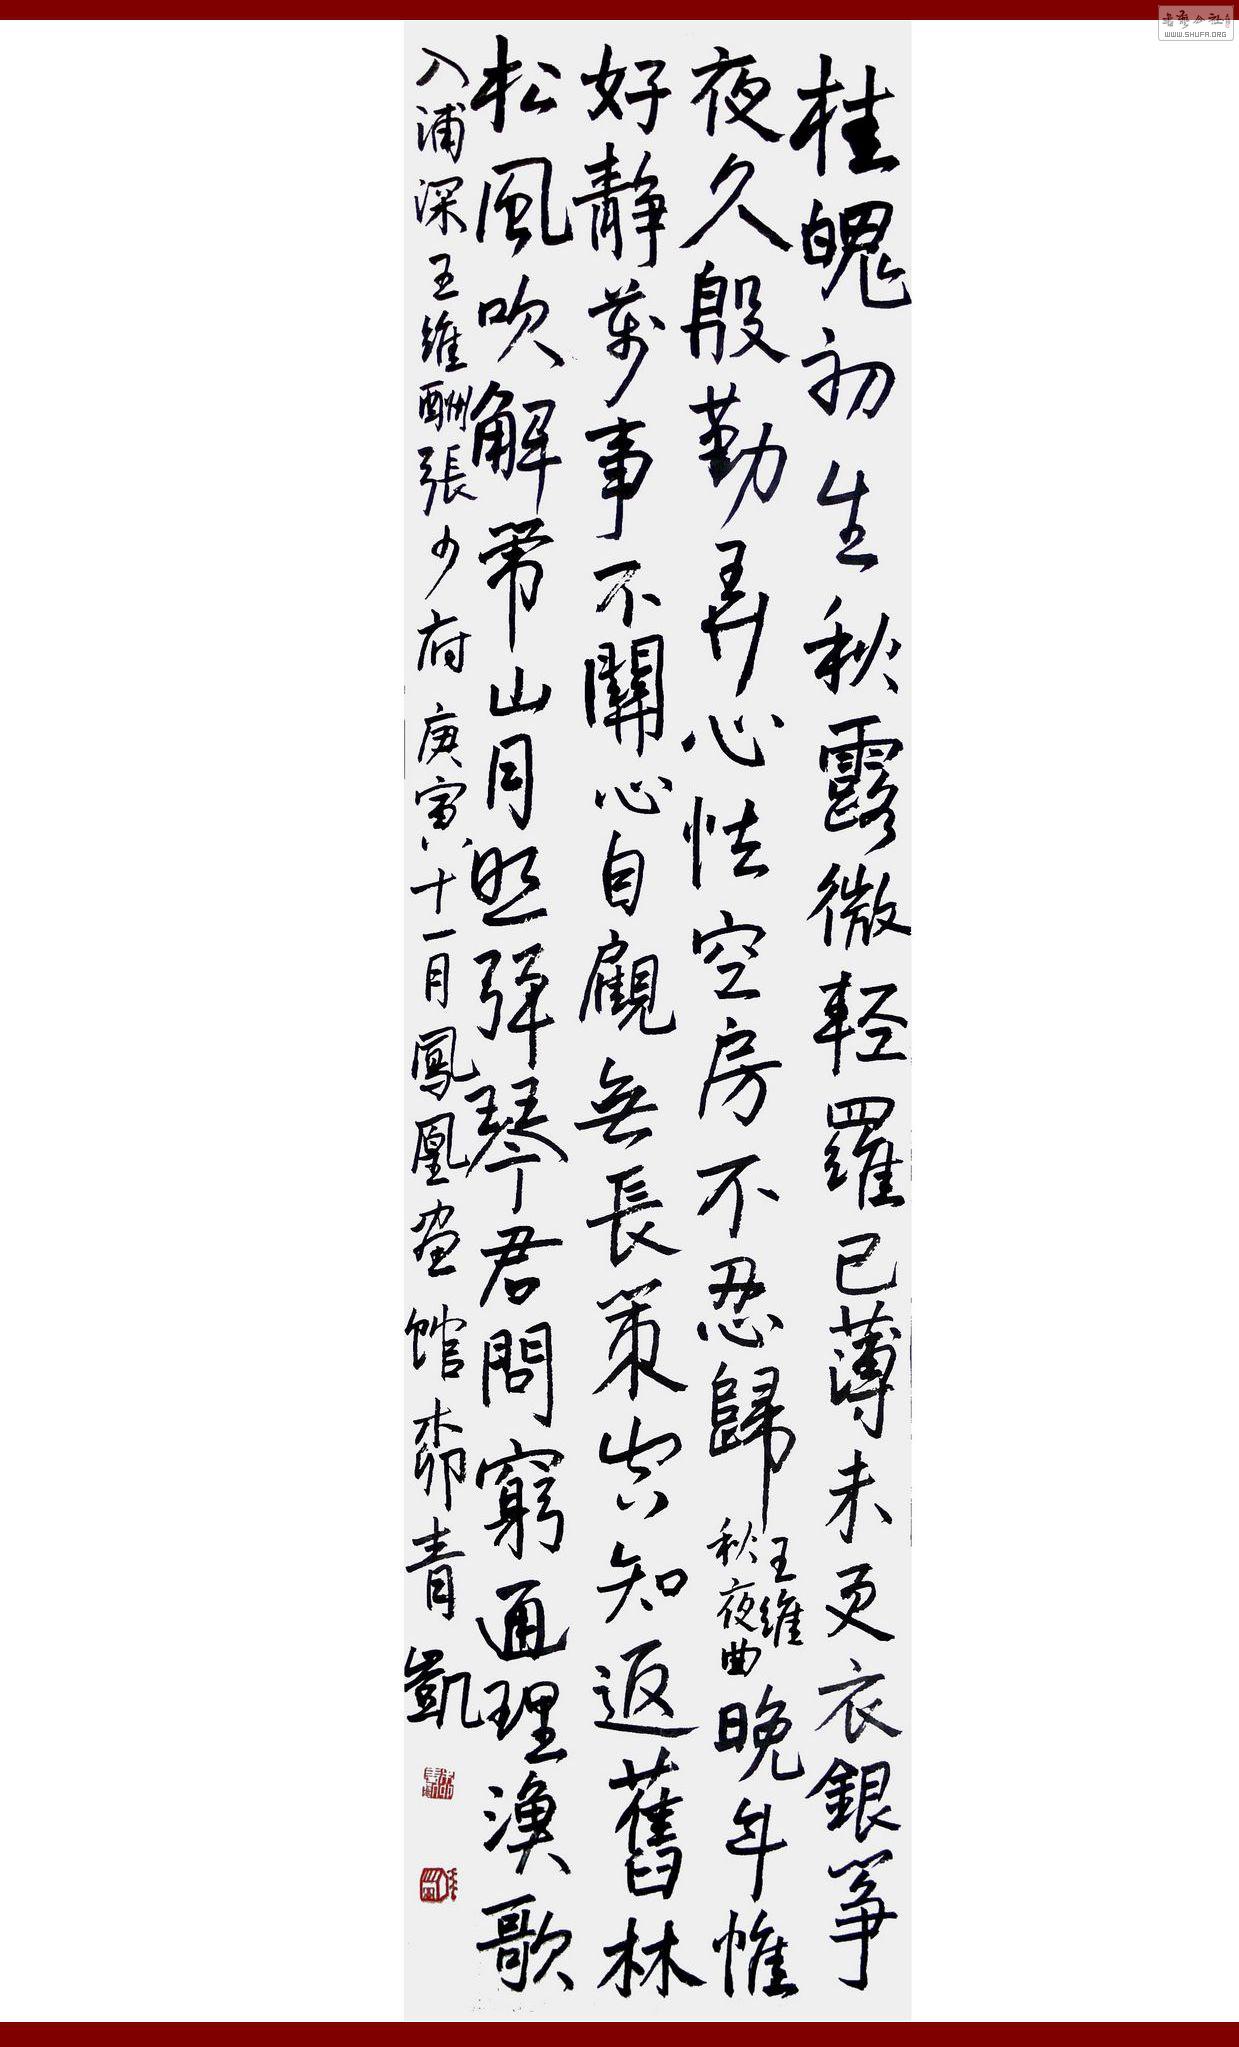 桂魄初生秋露微輕羅已薄未更衣銀筝
夜久殷勤弄心怯空房不忍歸
王維
秋夜曲
晚年惟
好靜萬事不關心自顧無長策空知返舊林
松風吹解帶山月照彈琴君問窮通理漁歌
入浦深王維酬張少府 庚寅八十一月鳳凰畫館柳青凱
WWW.SHUFA.ORG